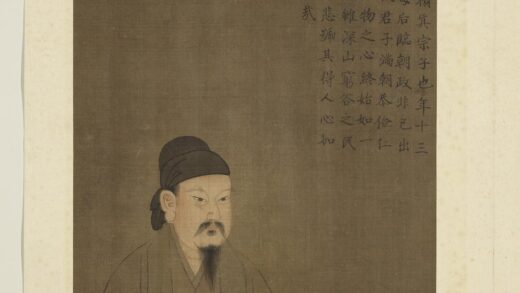 禎真宗子也年十三
母后臨朝政非己出
君子滿朝恭儉仁
物之心終始如一
雖深山窮谷之民
悲號其得人心如
哉